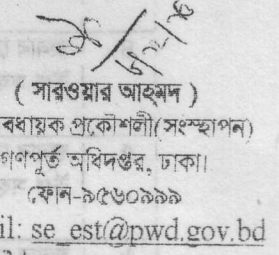 ( সারওয়ার আহমদ )
বধায়ক প্রকৌশলী(সংস্হাপন)
গণপূর্ত অধিদপ্তর, ঢাকা।
ফোন-৯৫৬০৯৯৯
il: se_est@pwd.gov.bd